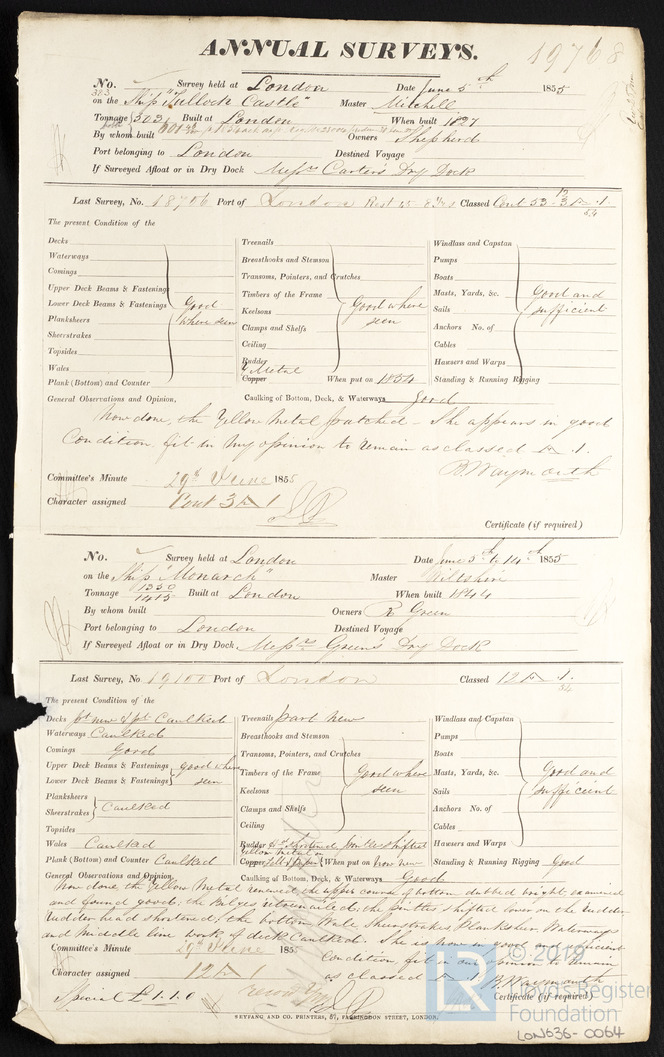 19768
ANNUAL SURVEYS.
No. Survey held at London Date June 5th 1855
on the Ship "Tullock Castle" Master Mitchell
Tonnage Built at London When built 1837
By whom built Owners Shepherd
Port belonging to London Destined Voyage
If Surveyed Afloat or in Dry Dock Messrs Carter's Dry Dock
Last Survey, No. 18706 Port of London Classed
The present Condition of the
Decks
Waterways
Comings
Upper Deck Beams & Fastenings
Lower Deck Beams & Fastenings
Planksheers
Sheerstrakes
Topsides
Wales
Plank (Bottom) and Counter
Good where seen
Treenails
Breasthooks and Stemson
Transoms, Pointers, and Crutches
Timbers of the Frame
Keelsons
Clamps and Shelfs
Ceiling
Rudder
Y Metal
Copper When put on 1854
Good where seen
Windlass and Capstan
Pumps
Boats
Masts, Yards, &c.
Sails
Anchors No. of
Cables
Hawsers and Warps
Standing & Running Rigging
Good and sufficient
General Observations and Opinion, Caulking of Bottom, Deck, & Waterways Good
Now done, the Yellow Metal patched – She appears in good
Condition, fit in my opinion to remain as classed Æ 1.
B. Waymouth
Committee's Minute 29th June 1855
Character assigned Cont 3 Æ 1
Certificate (if required)
No. Survey held at London Date June 5th to 14th 1855
on the Ship "Monarch" Master Wiltshire
Tonnage 1350 1415 Built at London When built 1844
By whom built Owners R Green
Port belonging to London Destined Voyage
If Surveyed Afloat or in Dry Dock, Messrs Green's Dry Dock
Last Survey, No 19100 Port of London Classed 12 A 1.
54
The present Condition of the
Decks pt new & pt Caulked
Waterways Caulked
Comings Good
Upper Deck Beams & Fastenings
Lower Deck Beams & Fastenings
good where seen
Planksheers
Sheerstrakes
Caulked
Topsides
Wales Caulked
Plank (Bottom) and Counter Caulked
Treenails part new
Breasthooks and Stemson
Transoms, Pointers, and Crutches
Timbers of the Frame
Keelsons
Clamps and Shelfs
Ceiling
Good where seen
Rudder
Yellow Metal on
Copper felt & paper When put on now new
Windlass and Capstan
Pumps
Boats
Masts, Yards, &c.
Sails
Anchors No. of
Cables
Hawsers and Warps
Good and sufficient
Standing & Running Rigging Good
General Observations and Opinion, Caulking of Bottom, Deck, & Waterways Good
Now done, the Yellow Metal renewed the upper course of bottom dubbed bright, examined
and found good, the Bilges retreenailed, the pintles shifted lower on the Rudder
Rudder head shortened, the bottom, Wale, Sheerstrakes, Planksheer, Waterways
and middle line work of deck Caulked. She is now in good and efficient
condition, fit in our opinion to remain
as classed Æ 1. B. Waymouth
Committee's Minute 29th June 1855
Character assigned 12 A 1
Special £1.1.0
Certificate (if required)
SEYFANG AND CO. PRINTERS, 57, FARRINGDON STREET, LONDON.
LR
© 2019
Lloyd's Register
Foundation
LON636-0064